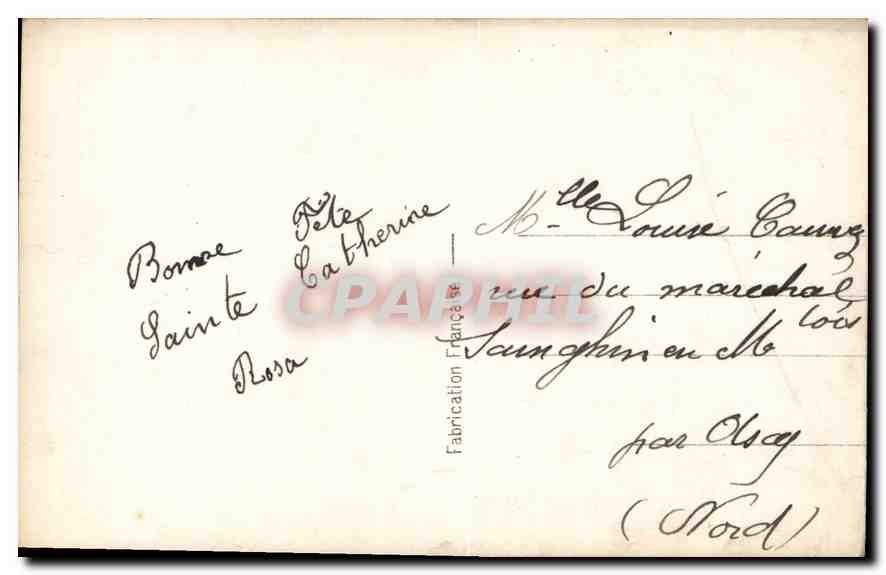 Bonne Fête
Sainte Catherine
Rosa
CPAPHIL
Fabrication Française
Mlle Louise
rue du maréchal
Sainghin en M
par
(Nord)